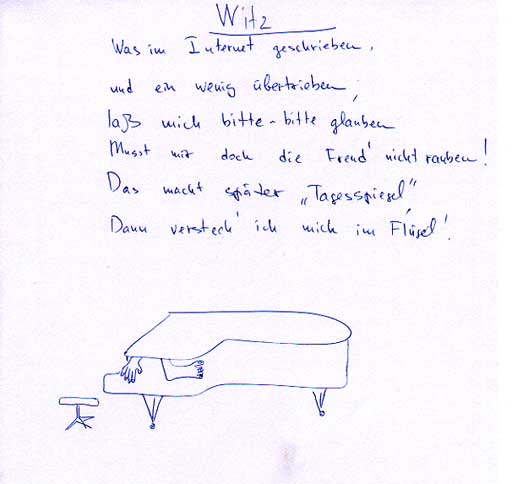 Witz
Was im Internet geschrieben,
und ein wenig übertrieben,
laß mich bitte-bitte glauben
Musst mir doch die Freud' nicht rauben!
Das macht später „Tagesspiegel",
Dann versteck' ich mich im Flügel!